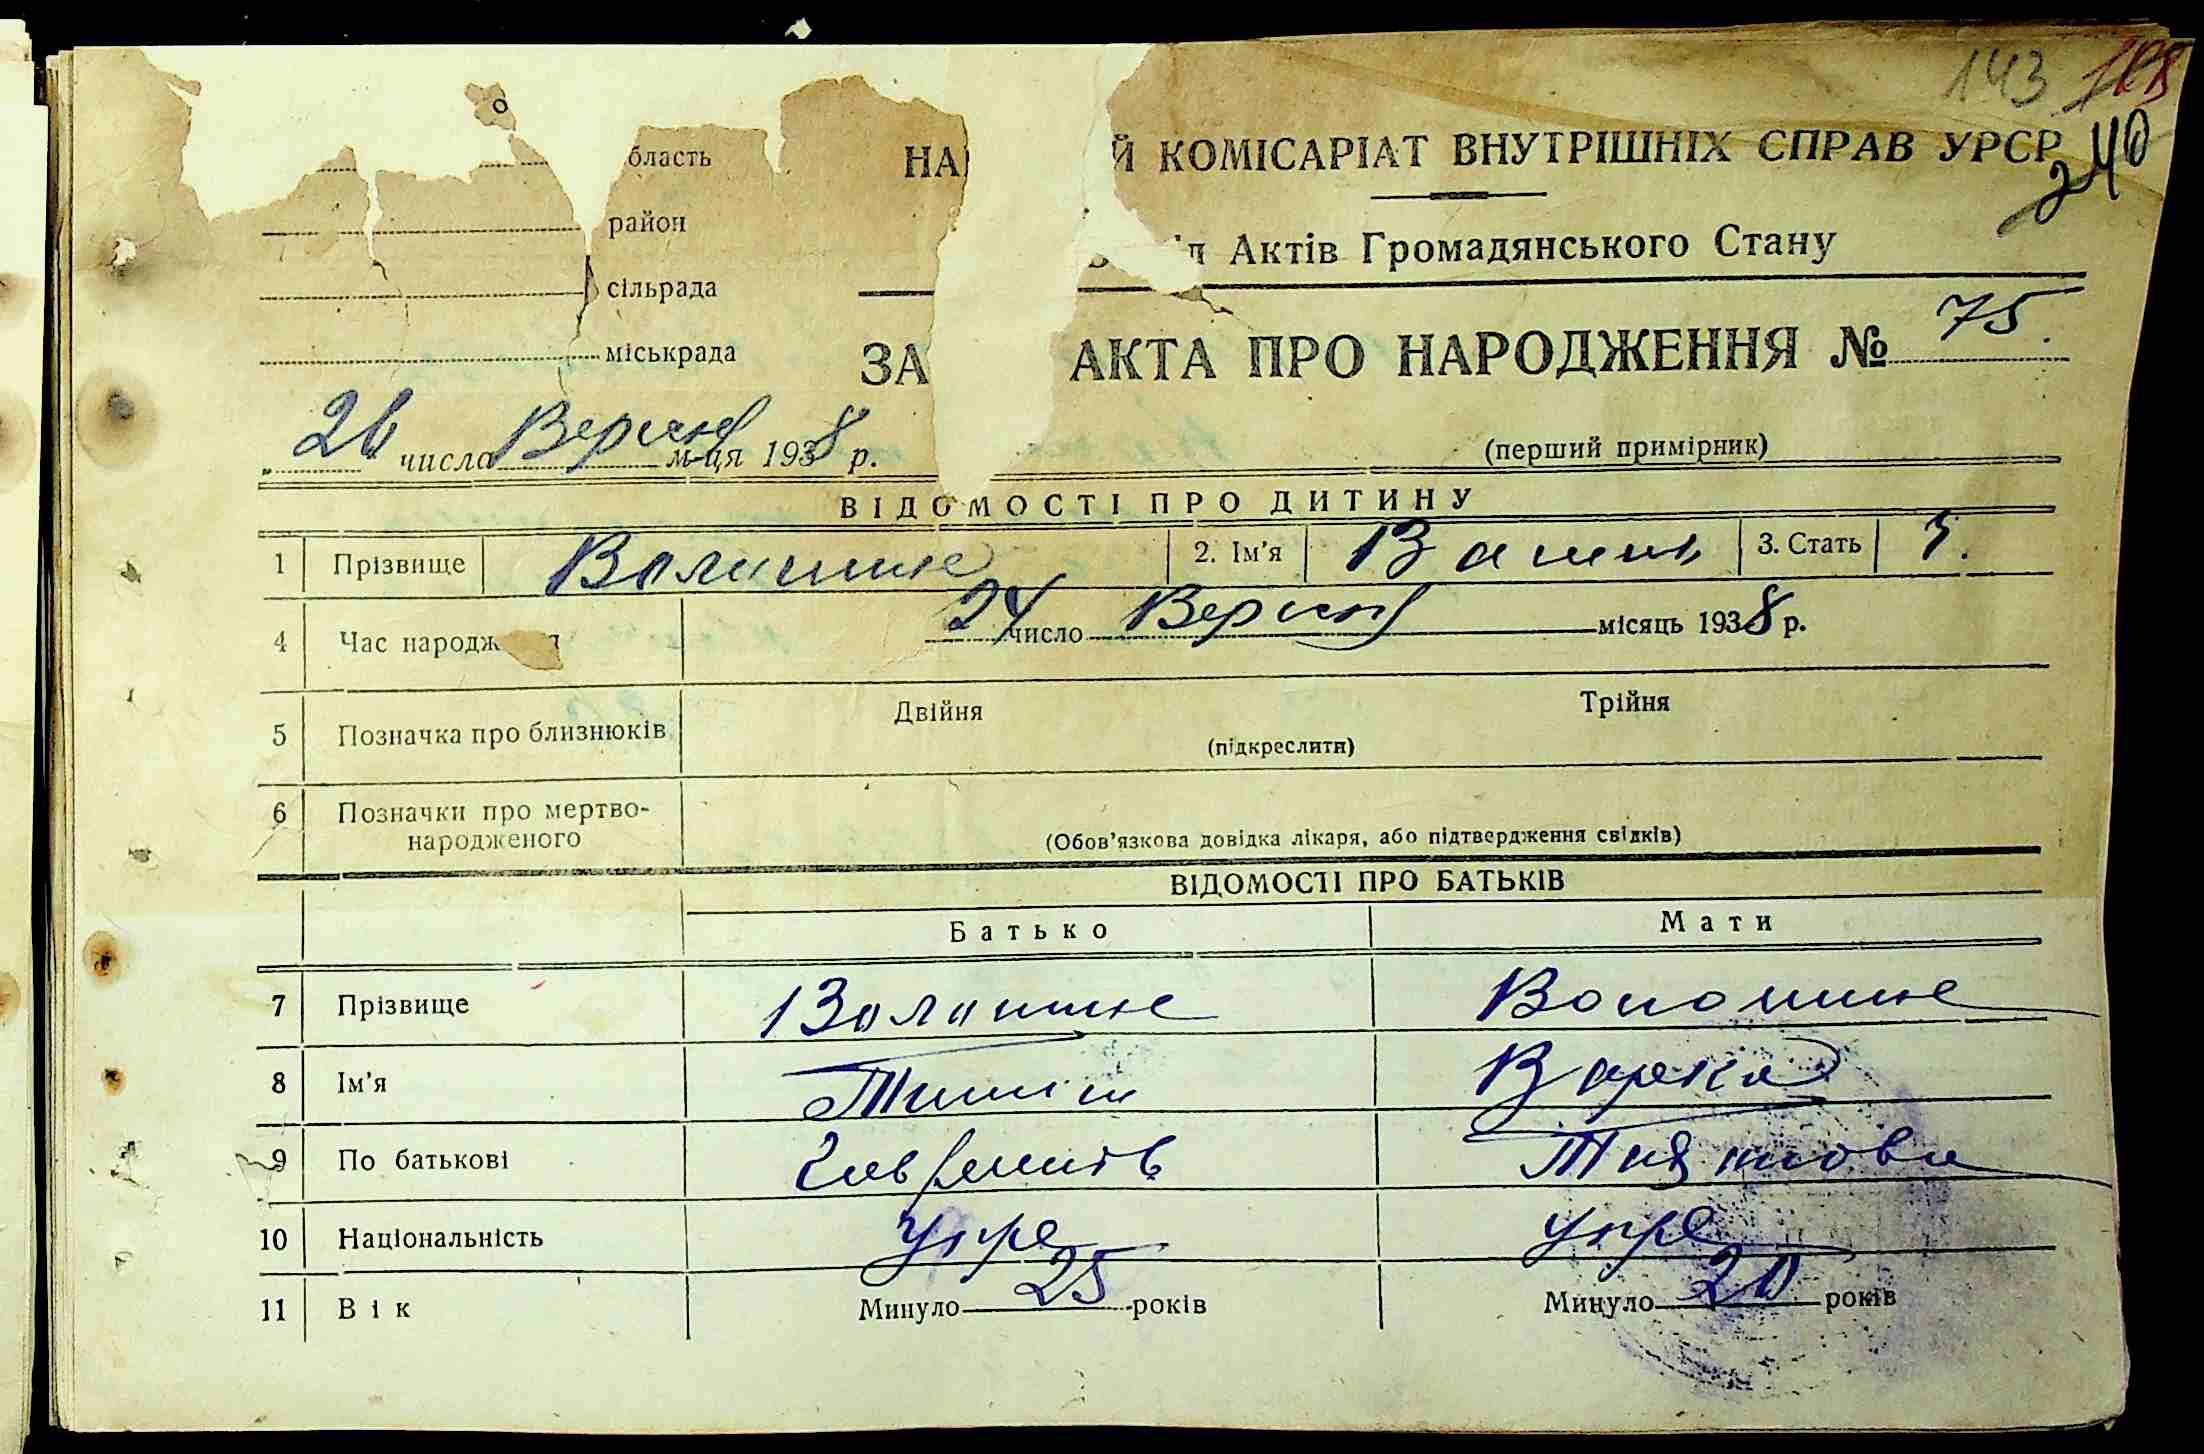 143
240
бласть
НА Й КОМІСАРІАТ ВНУТРІШНІХ СПРАВ УРСР
район
л Актів Громадянського Стану
сільрада
міськрада
ЗА АКТА ПРО НАРОДЖЕННЯ № 75.
„26“ числа Вересня м-ця 1938 р.
(перший примірник)
ВІДОМОСТІ ПРО ДИТИНУ
1 Прізвище Волошине 2. Ім'я 3. Стать Ч.
4 Час народж я 24 число Вересня місяць 1938 р.
5 Позначка про близнюків Двійня Трійня
(підкреслити)
6 Позначки про мертво-
народженого (Обов'язкова довідка лікаря, або підтвердження свідків)
ВІДОМОСТІ ПРО БАТЬКІВ
Батько Мати
7 Прізвище Волошине Волошине
8 Ім'я Тиміш Варка
9 По батькові
10 Національність укре укре
11 Вік Минуло 25 років Минуло 20 років